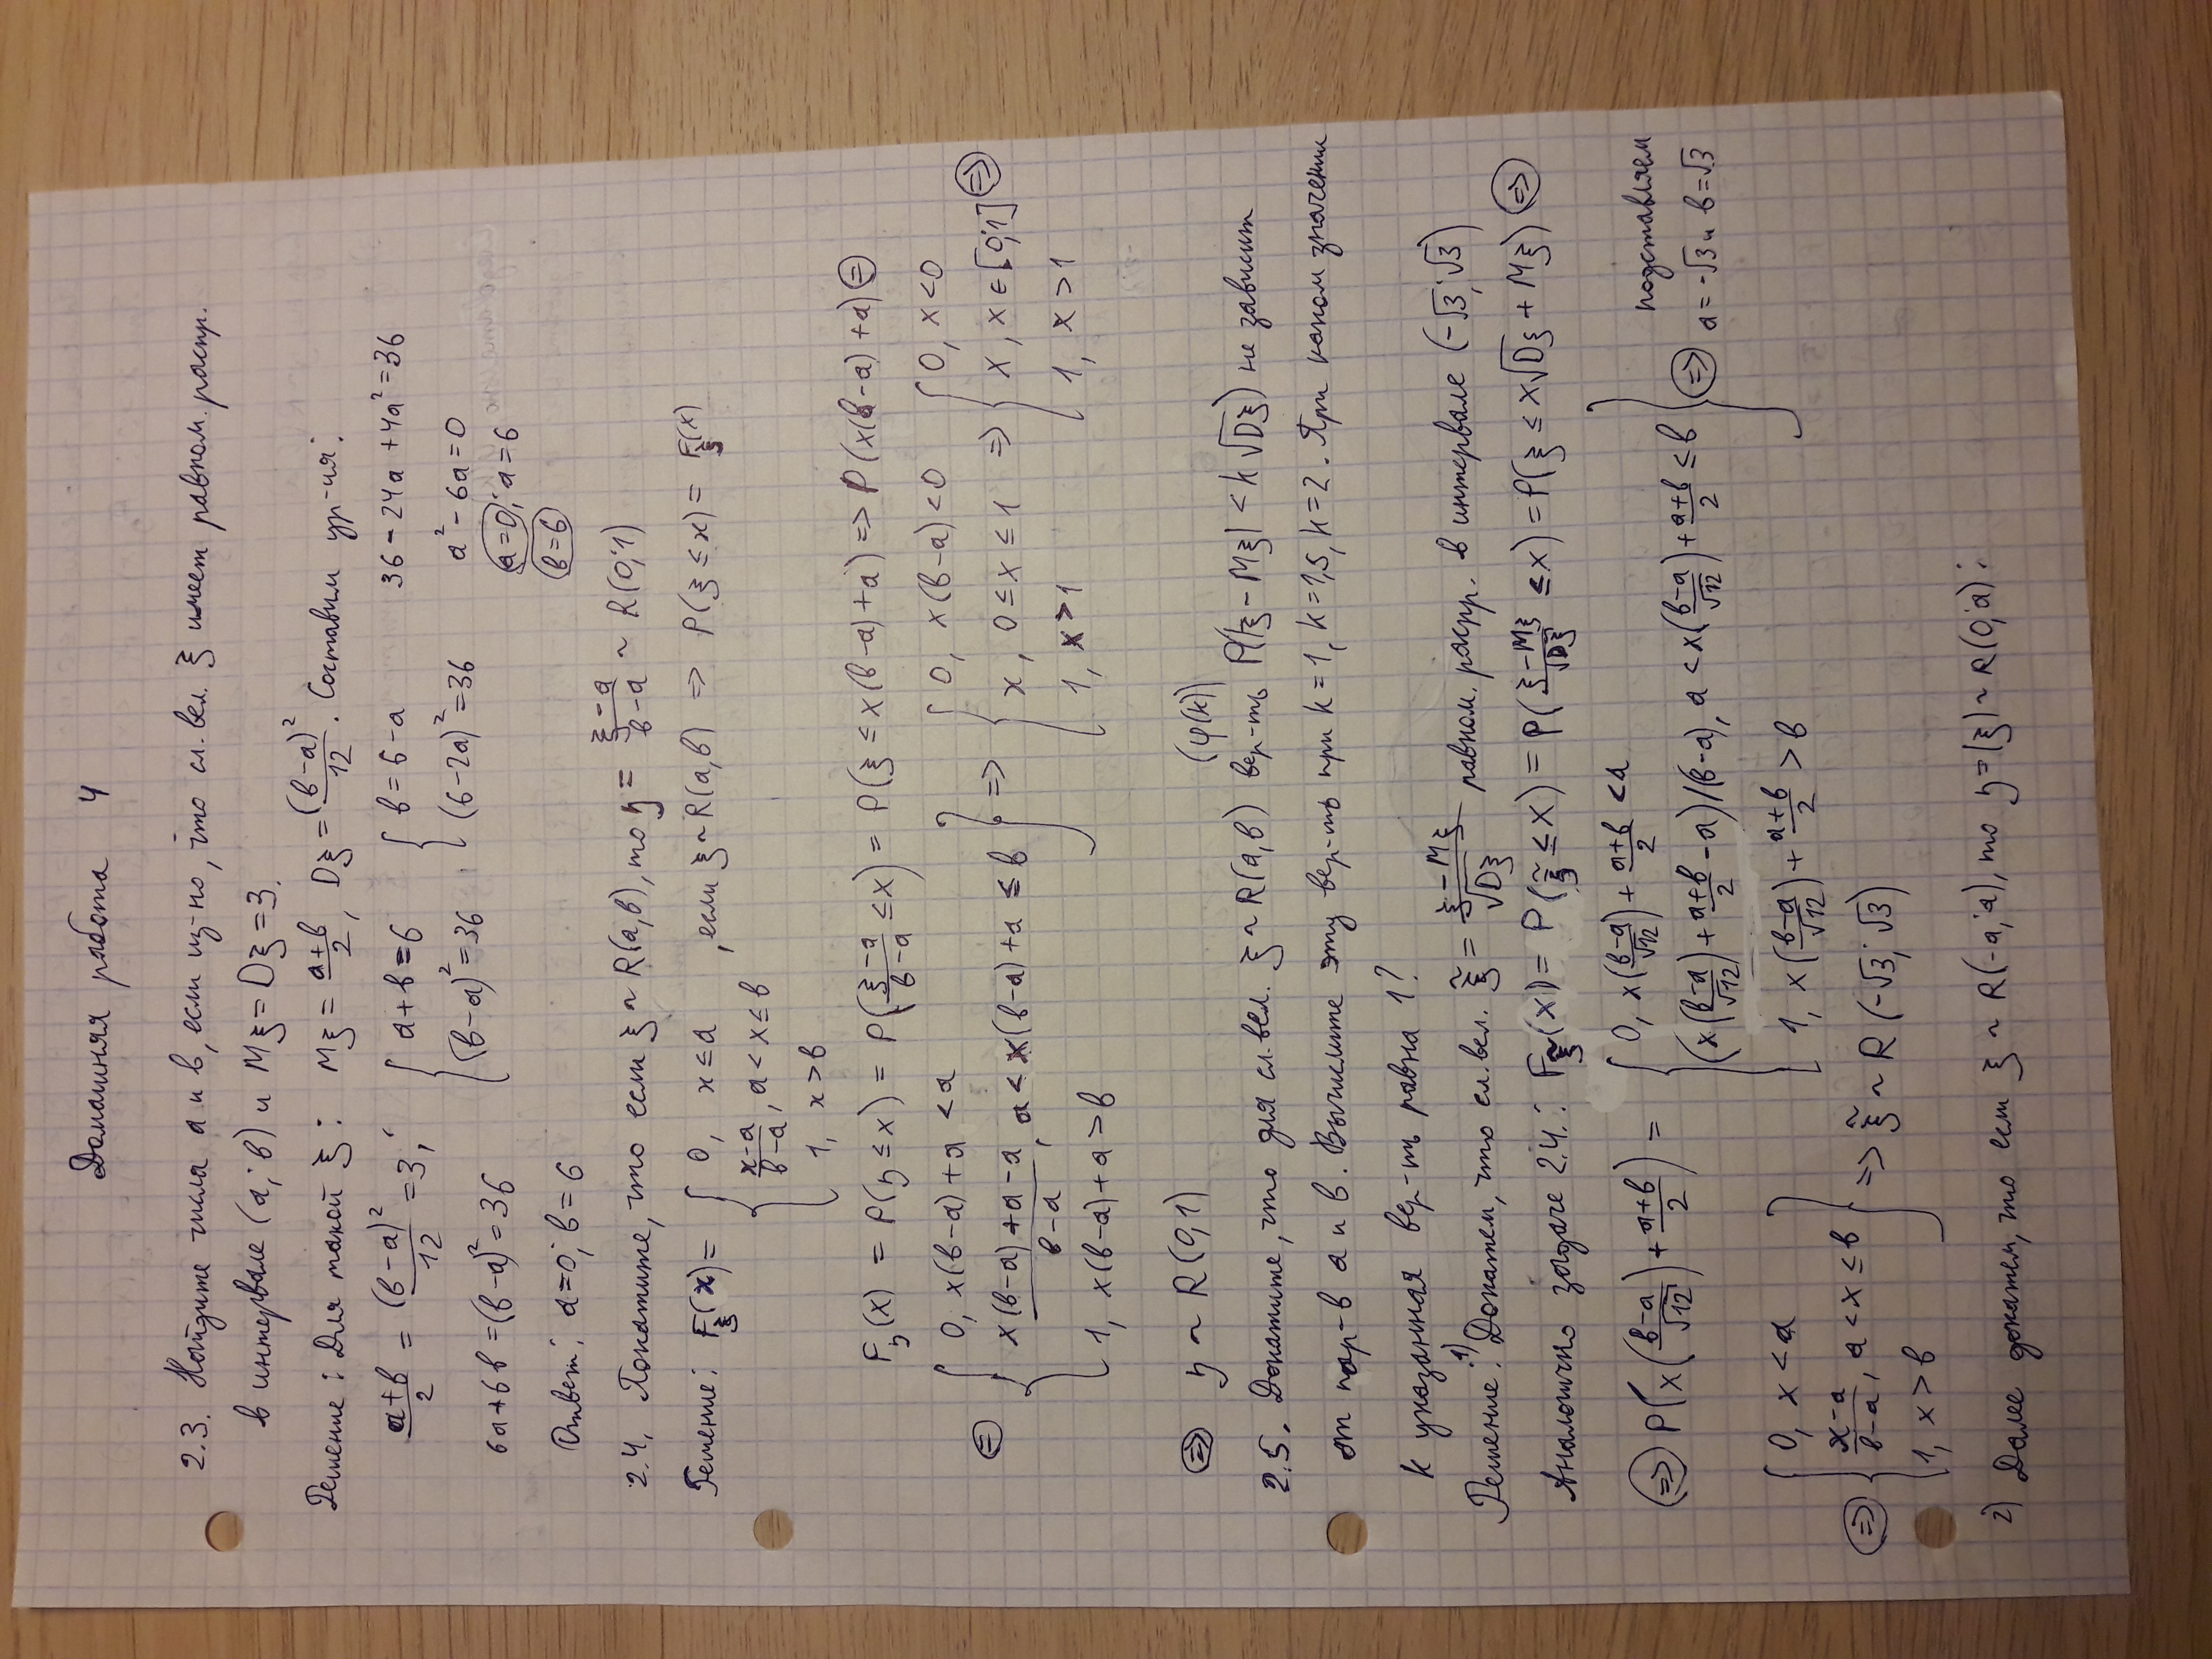 Домашняя работа 4
2.3. Найдите числа a и b, если из-но, что сл. вел. ξ имеет равном. распр.
в интервале (a; b) и Mξ = Dξ = 3.
Решение: Для такой ξ: Mξ = (a+b)/2, Dξ = (b-a)²/12. Составим ур-ия:
(a+b)/2 = (b-a)²/12 = 3; { a+b=6 { b=6-a 36-24a+4a²=36
6a+6b=(b-a)²=36 (b-a)²=36 (6-2a)²=36 a²-6a=0
a=0; a=6
b=6
Ответ: a=0; b=6
2.4. Покажите, что если ξ ~ R(a,b), то η = (ξ-a)/(b-a) ~ R(0;1)
Решение: F_ξ(x) = { 0, x≤a , если ξ~R(a,b) => P(ξ≤x) = F_ξ(x)
(x-a)/(b-a), a<x≤b
1, x>b
F_η(x) = P(η≤x) = P((ξ-a)/(b-a) ≤x) = P(ξ≤x(b-a)+a) => P(x(b-a)+a) =
= { 0, x(b-a)+a<a } => { 0, x(b-a)<0 => { 0, x<0
(x(b-a)+a-a)/(b-a), a<x(b-a)+a≤b x, 0≤x≤1 x, x∈[0;1] =>
1, x(b-a)+a>b 1, x>1 1, x>1
=> η ~ R(0,1)
(φ(k))
2.5. Докажите, что для сл. вел. ξ~R(a,b) вер-ть P(|ξ-Mξ| <k√Dξ) не зависит
от пар-в a и b. Вычислите эту вер-ть при k=1, k=1,5, k=2. При каком значении
k указанная вер-ть равна 1?
Решение: 1) Докажем, что сл. вел. ξ̃ = (ξ-Mξ)/√Dξ равном. распр. в интервале (-√3; √3)
Аналогично задаче 2.4.: F_ξ̃(x) = P(ξ̃≤x) = P((ξ-Mξ)/√Dξ ≤x) = P(ξ≤x√Dξ+Mξ) =>
=> P(x((b-a)/√12)+(a+b)/2) = { 0, x((b-a)/√12)+(a+b)/2 <a } подставляем
(x((b-a)/√12)+(a+b)/2-a)/(b-a), a<x((b-a)/√12)+(a+b)/2≤b => a=-√3 и b=√3
1, x((b-a)/√12)+(a+b)/2 >b
=> { 0, x<a }
(x-a)/(b-a), a<x≤b => ξ̃ ~ R(-√3; √3)
1, x>b
2) Далее докажем, что если ξ ~ R(-a; a), то η=|ξ| ~ R(0; a):